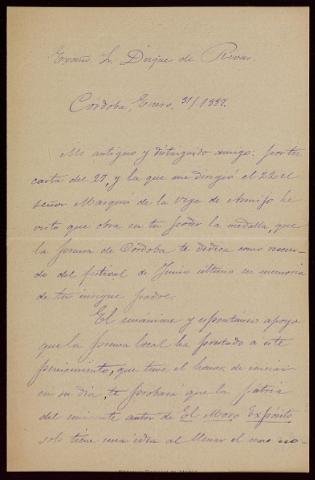 Excmo. Sr. Duque de Rivas.
Córdoba, Enero, 31/1887.
Mi antiguo y distinguido amigo: por tu
carta del 27, y la que me dirigió el 22 el
señor Marqués de la Vega de Armijo he
visto que obra en tu poder la medalla, que
la prensa de Córdoba te dedica como recuer-
do del festival de Junio último en memoria
de tu insigne padre.
El unánime y espontáneo apoyo
que la prensa local ha prestado a este
pensamiento, que tuve el honor de iniciar
en su día, te probará que la patria
del eminente autor de El Moro Expósito
solo tiene una idea al llenar el mas no-